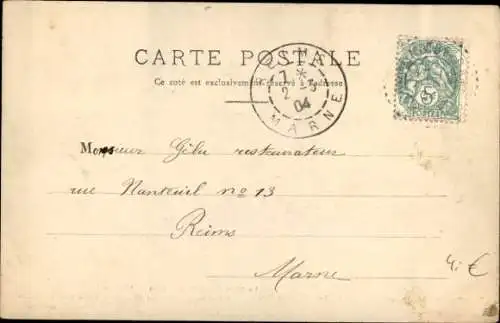 CARTE POSTALE
Ce côté est exclusivement réservé à l'adresse
7
2 -3
04
MARNE
5
POSTES
Monsieur Gélu restaurateur
rue Nanteuil no 13
Reims
Marne
4.- €